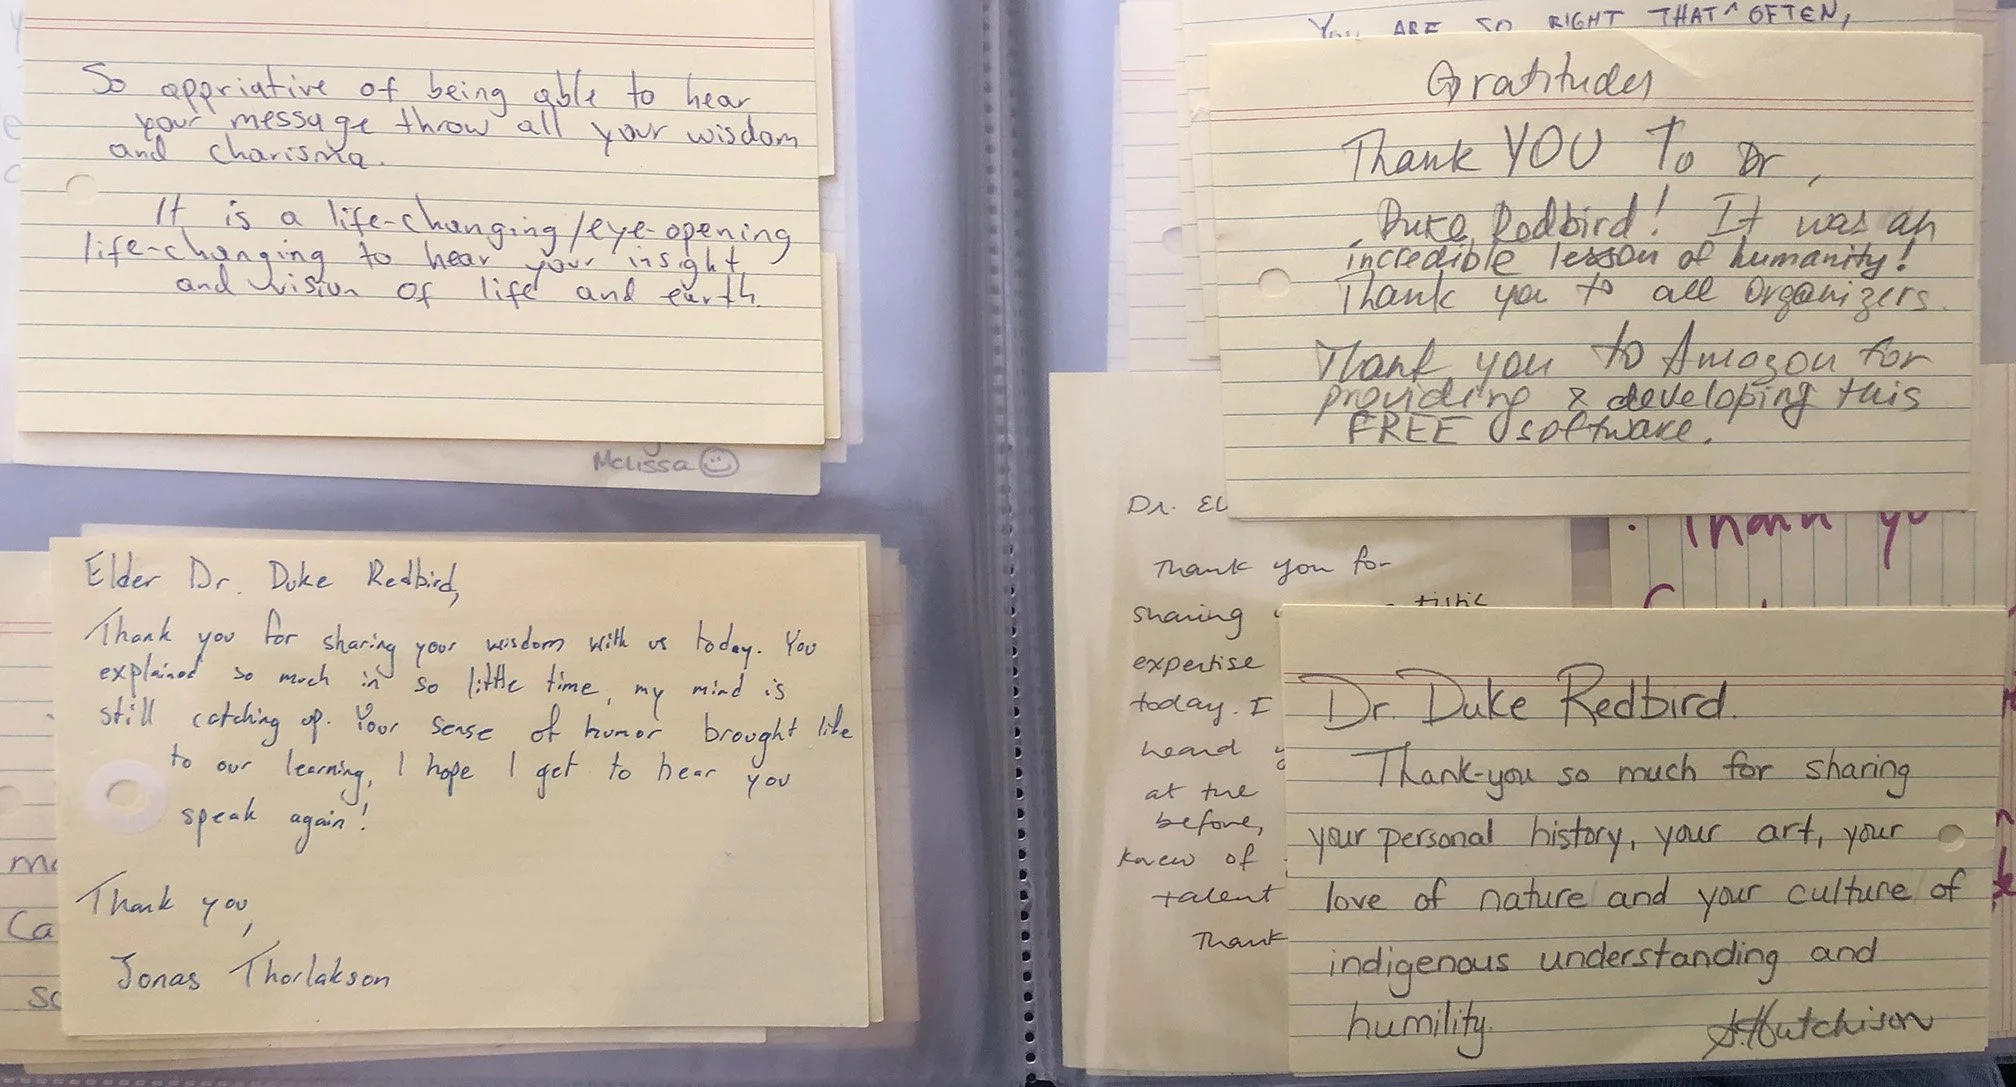 So appriative of being able to hear
your message throw all your wisdom
and charisma.
It is a life-changing/eye-opening
life-changing to hear your insight
and vision of life and earth.
Melissa
Elder Dr. Duke Redbird,
Thank you for sharing your wisdom with us today. You
explained so much in so little time, my mind is
still catching up. Your sense of humor brought life
to our learning, I hope I get to hear you
speak again!
Thank you,
Jonas Thorlakson
YOU ARE SO RIGHT THAT ^ OFTEN,
Gratitudes
Thank YOU To Dr,
Duke Redbird! It was an
incredible lesson of humanity!
Thank you to all Organizers.
Thank you to Amazon for
providing & developing this
FREE software.
Dr. El
Thank you for
sharing
expertise
today. I
heard y
at the
before,
knew of
talent
Thank
Thank yo
Dr. Duke Redbird.
Thank-you so much for sharing
your personal history, your art, your
love of nature and your culture of
indigenous understanding and
humility.
A. Hutchison